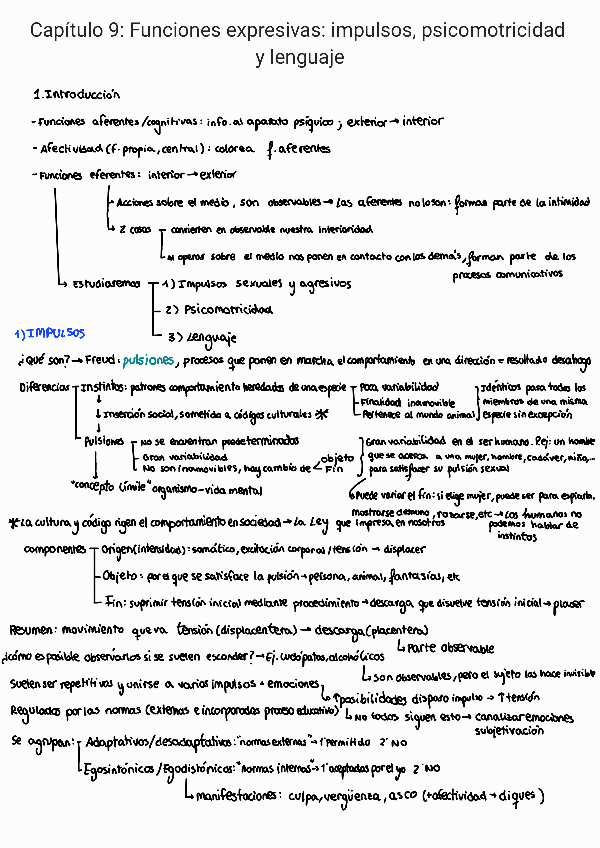 Capítulo 9: Funciones expresivas: impulsos, psicomotricidad
y lenguaje
1. Introducción
- Funciones aferentes/cognitivas: info. al aparato psíquico ; exterior → interior
- Afectividad (f. propia, central): colorea f. aferentes
- Funciones eferentes: interior → exterior
Acciones sobre el medio, son observables → Las aferentes no lo son: forman parte de la intimidad
2 cosas
convierten en observable nuestra interioridad
Al operar sobre el medio nos ponen en contacto con los demás, forman parte de los
procesos comunicativos
Estudiaremos
1) Impulsos sexuales y agresivos
2) Psicomotricidad
3) Lenguaje
1) IMPULSOS
¿Qué son? → Freud: pulsiones, procesos que ponen en marcha el comportamiento en una dirección = resultado desahogo
Diferencias
Instintos: patrones comportamiento heredados de una especie
Poca variabilidad
Finalidad inamovible
Pertenece al mundo animal
Idénticos para todos los
miembros de una misma
especie sin excepción
↓ Inserción social, sometida a códigos culturales *
Pulsiones
No se encuentran predeterminados
Gran variabilidad
No son inamovibles, hay cambio de
objeto
Fin
Gran variabilidad en el ser humano. Pej: un hombre
que se acerca a una mujer, hombre, cadáver, niña,...
para satisfacer su pulsión sexual
"concepto límite" organismo - vida mental
Puede variar el fin: si elige mujer, puede ser para espiarla,
mostrarse desnudo, rozarse, etc → Los humanos no
podemos hablar de
instintos
* La cultura y código rigen el comportamiento en sociedad → La Ley que impresa en nosotros
componentes
Origen (intensidad): somático, excitación corporal / tensión → displacer
Objeto: por el que se satisface la pulsión → persona, animal, fantasías, etc
Fin: suprimir tensión inicial mediante procedimiento → descarga que disuelve tensión inicial → placer
Resumen: movimiento que va tensión (displacentera) → descarga (placentera)
Parte observable
¿cómo es posible observarlos si se suelen esconder? → Ej. ludópatas, alcohólicos
son observables, pero el sujeto las hace invisible
Suelen ser repetitivos y unirse a varios impulsos + emociones
↑ posibilidades disparo impulso → ↑ tensión
Regulados por las normas (externas e incorporadas proceso educativo)
No todos siguen esto → canalizar emociones
subjetivación
Se agrupan:
Adaptativos/desadaptativos: "normas externas" → 1º permitido 2º NO
Egosintónicos / Egodistónicos: "normas internas" → 1º aceptadas por el yo 2º NO
manifestaciones: culpa, vergüenza, asco (+ afectividad → diques)